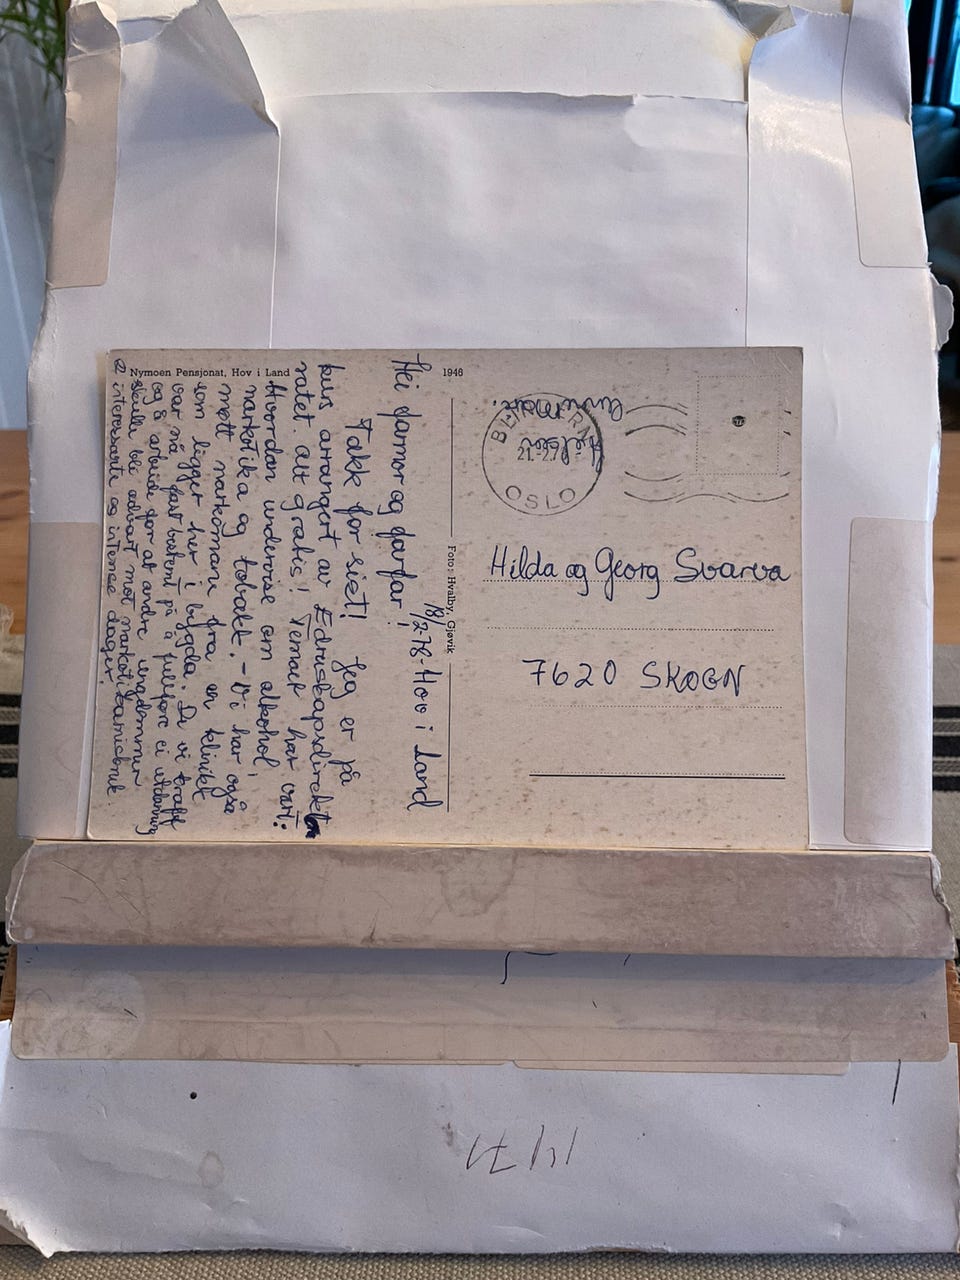 Nymoen Pensjonat, Hov i Land
1946
18/2-78 - Hov i Land
Hei farmor og farfar!
Takk for sist! Jeg er på
kurs arrangert av Edruskapsdirekto
ratet alt gratis! Temaet har vært:
Hvordan undervise om alkohol,
narkotika og tobakk. - Vi har også
møtt narkomane fra en klinikk
som ligger her i bygda. De vi traff
var nå fast bestemt på å fullføre ei utdanning
og å arbeide for at andre ungdommer
skulle bli advart mot narkotikamisbruk.
interessante og intense dager.
Foto: Hvalby, Gjøvik
Hilsen
OSLO
Hilda og Georg Svarva
7620 SKOGN